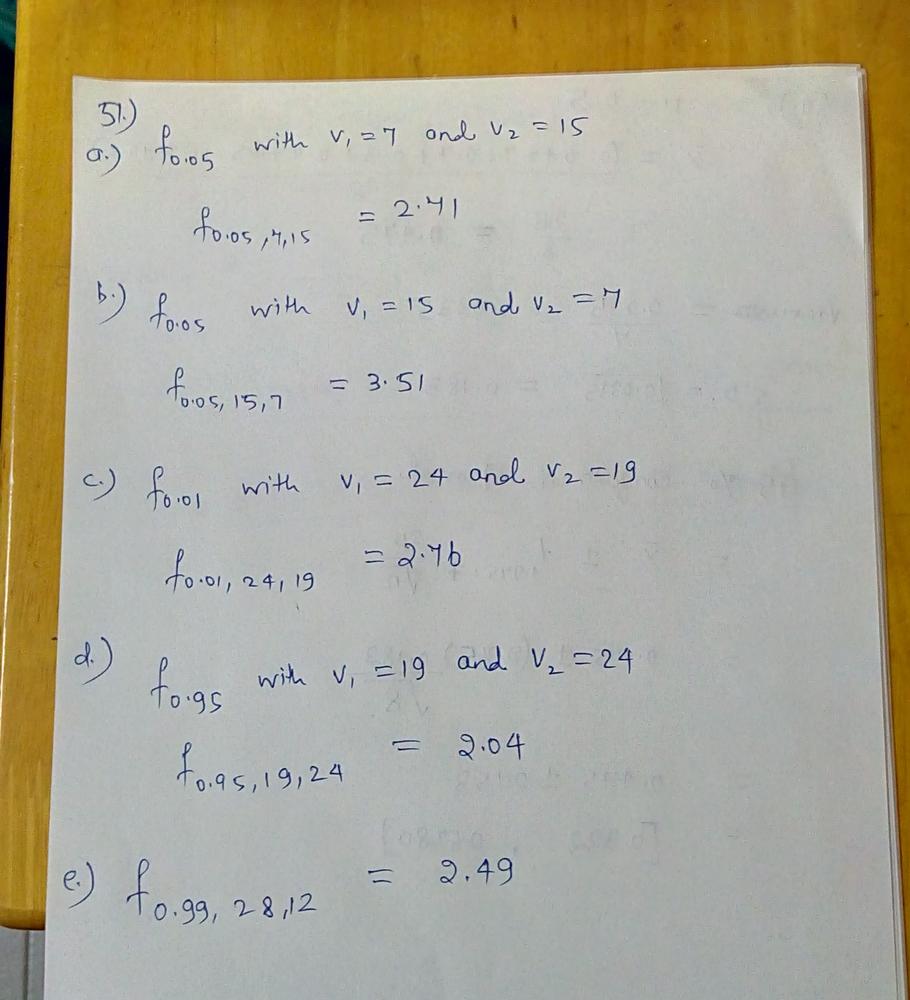 51.)
a.) f0.05 with v1 = 7 and v2 = 15
f0.05,7,15 = 2.71
b.) f0.05 with v1 = 15 and v2 = 7
f0.05,15,7 = 3.51
c.) f0.01 with v1 = 24 and v2 = 19
f0.01,24,19 = 2.76
d.) f0.95 with v1 = 19 and v2 = 24
f0.95,19,24 = 2.04
e.) f0.99,28,12 = 2.49